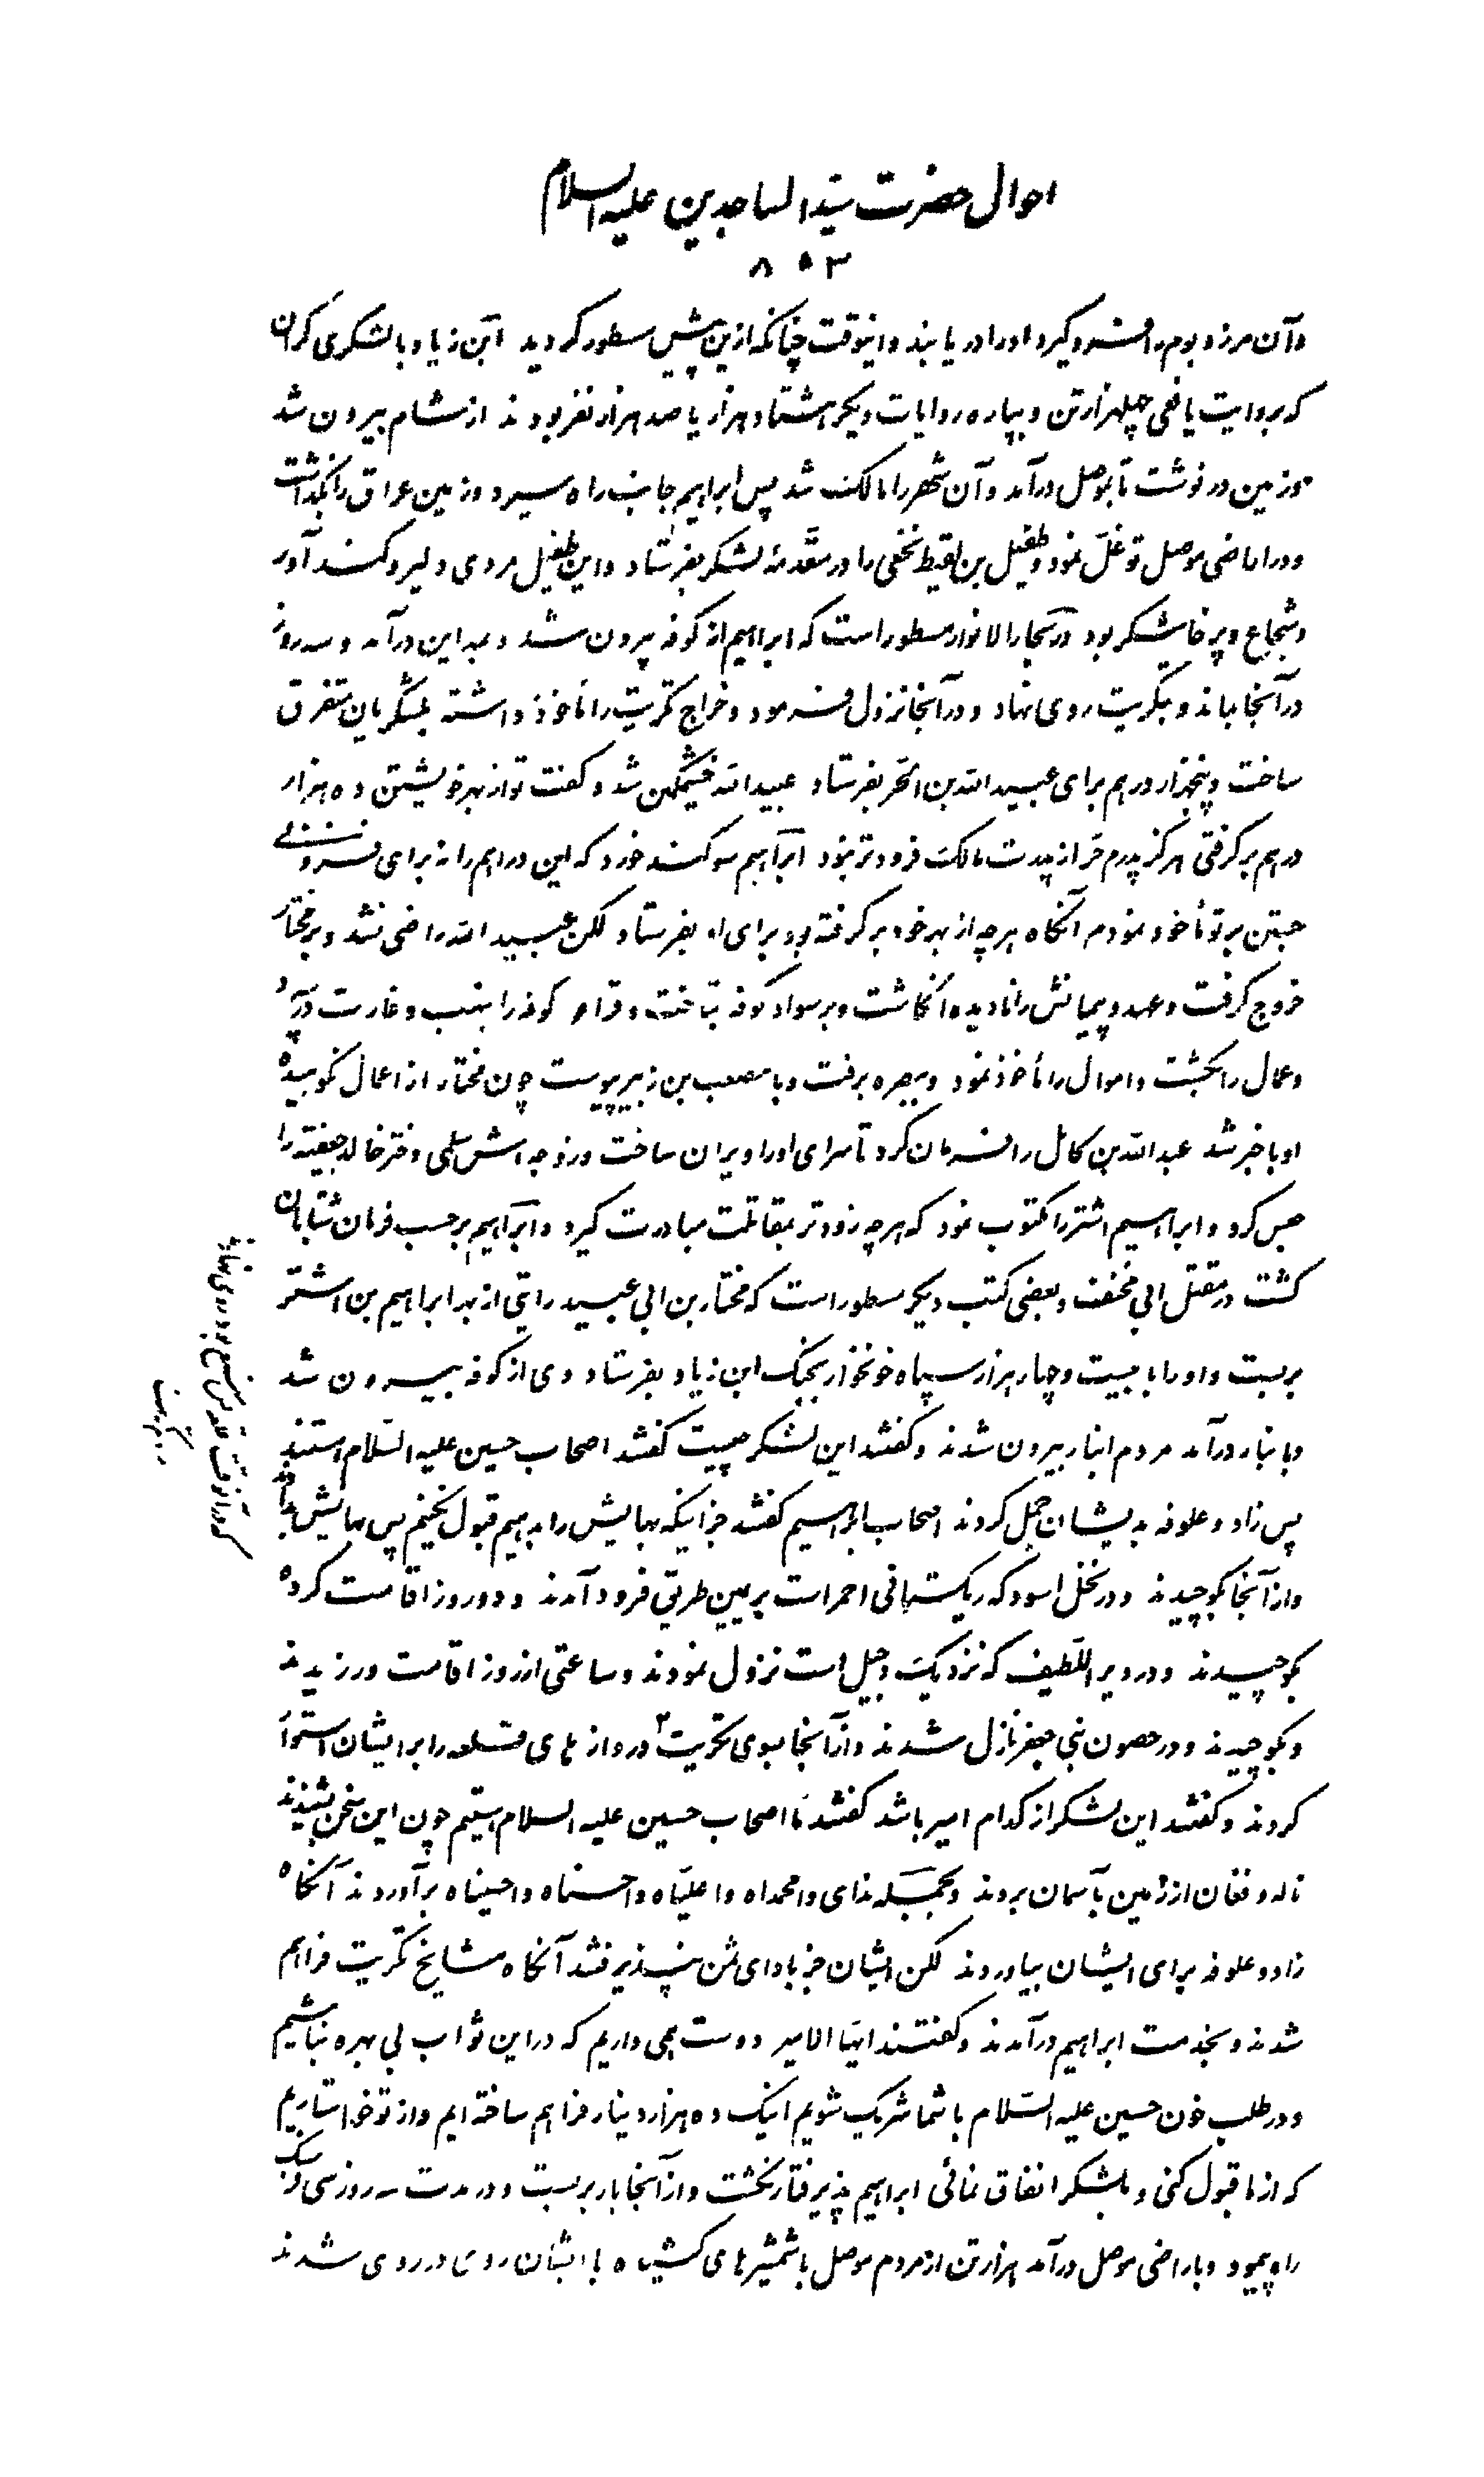 احوال حضرت سیدالساجدین علیه السلام
۸۵۳
وآن مرز و بوم را فرو گیرد اورا دریابند و اینوقت چنانکه ازین پیش مسطور گردید ابن زیاد با لشکری گران
که بروایت یافعی چهلهزارتن و بپاره روایات دیگر هشتاد هزار یا صد هزار نفر بودند از شام بیرون شد
وزمین در نوشت تا بموصل درآمد و آن شهر را مالک شد پس ابراهیم جانب راه سپرد و زمین عراق را بگذاشت
و در اراضی موصل توغل نمود و طفیل بن لقیط نخعی را در مقدمهٔ لشکر بفرستاد و این طفیل مردی دلیر و کندآور
و شجاع و پرخاشگر بود در بحارالانوار مسطور است که ابراهیم از کوفه بیرون شد و بمداین درآمد و سه روز
در آنجا بماند و بتکریت روی نهاد و در آنجا نزول فرمود و خراج تکریت را مأخوذ داشته بلشگریان متفرق
ساخت و پنجهزار درهم برای عبیدالله بن الحر بفرستاد عبیدالله خشمگین شد و گفت تو از بهر خویشتن ده هزار
درهم برگرفتی هرگز پدرم حر از پدرت مالک فرودتر نبود ابراهیم سوگند خورد که این دراهم را نه برای فزونی
جستن بر تو مأخوذ نمودم آنگاه هرچه از بهر خود برگرفته بود برای او بفرستاد لکن عبیدالله راضی نشد و بر مختار
خروج گرفت و عهد و پیمانش را نادیده انگاشت و بر سواد کوفه بتاخت و قراء کوفه را بنهب و غارت درآورد
و عمال را بکشت و اموال را مأخوذ نمود و ببصره برفت و با مصعب بن زبیر پیوست چون مختار از اعمال نکوهیده
او با خبر شد عبدالله بن کامل را فرمان کرد تا سرای اورا ویران ساخت و زوجه اش سلمی دختر خالد جعفیه را
حبس کرد و ابراهیم اشتر را مکتوب نمود که هرچه زودتر بمقاتلت مبادرت گیرد و ابراهیم برحسب فرمان شتابان
گشت در مقتل ابی مخنف و بعضی کتب دیگر مسطور است که مختار بن ابی عبید رایتی از بهر ابراهیم بن اشتر
بربست و اورا با بیست و چهار هزار سپاه خونخوار بجنگ ابن زیاد بفرستاد وی از کوفه بیرون شد
و بانبار درآمد مردم انبار بیرون شدند و گفتند این لشکر چیست گفتند اصحاب حسین علیه السلام هستند
پس زاد و علوفه بدیشان حمل کردند اصحاب ابراهیم گفتند جز اینکه بهایش را بدهیم قبول نکنیم پس بهایش بدادند
و از آنجا بکوچیدند و در نخل اسود که ریگستانی احمر است بر یمین طریق فرود آمدند و دو روز اقامت کرده
بکوچیدند و در دیر اللطیف که نزدیک دجیل است نزول نمودند و ساعتی از روز اقامت ورزیدند
و بکوچیدند و در حصون بنی جعفر نازل شدند و از آنجا بسوی تکریت ۳ دروازه های قلعه را بر ایشان استوار
کردند و گفتند این لشکر از کدام امیر باشد گفتند ما اصحاب حسین علیه السلام هستیم چون این سخن بشنیدند
ناله و فغان از زمین بآسمان بردند و بجمله ندای وامحمداه واعلیاه واحسناه واحسیناه برآوردند آنگاه
زاد و علوفه برای ایشان بیاوردند لکن ایشان جز بادای ثمن نپذیرفتند آنگاه مشایخ تکریت فراهم
شدند و بخدمت ابراهیم درآمدند و گفتند ایها الامیر دوست همی داریم که در این ثواب بی بهره نباشیم
و در طلب خون حسین علیه السلام با شما شریک شویم اینک ده هزار دینار فراهم ساخته ایم و از تو خواستاریم
که از ما قبول کنی و بلشکر انفاق نمائی ابراهیم پذیرفتار نگشت و از آنجا بار بربست و در مدت سه روز سی فرسنگ
راه پیمود و باراضی موصل درآمد هزار تن از مردم موصل با شمشیرهای کشیده با ایشان روی در روی شدند